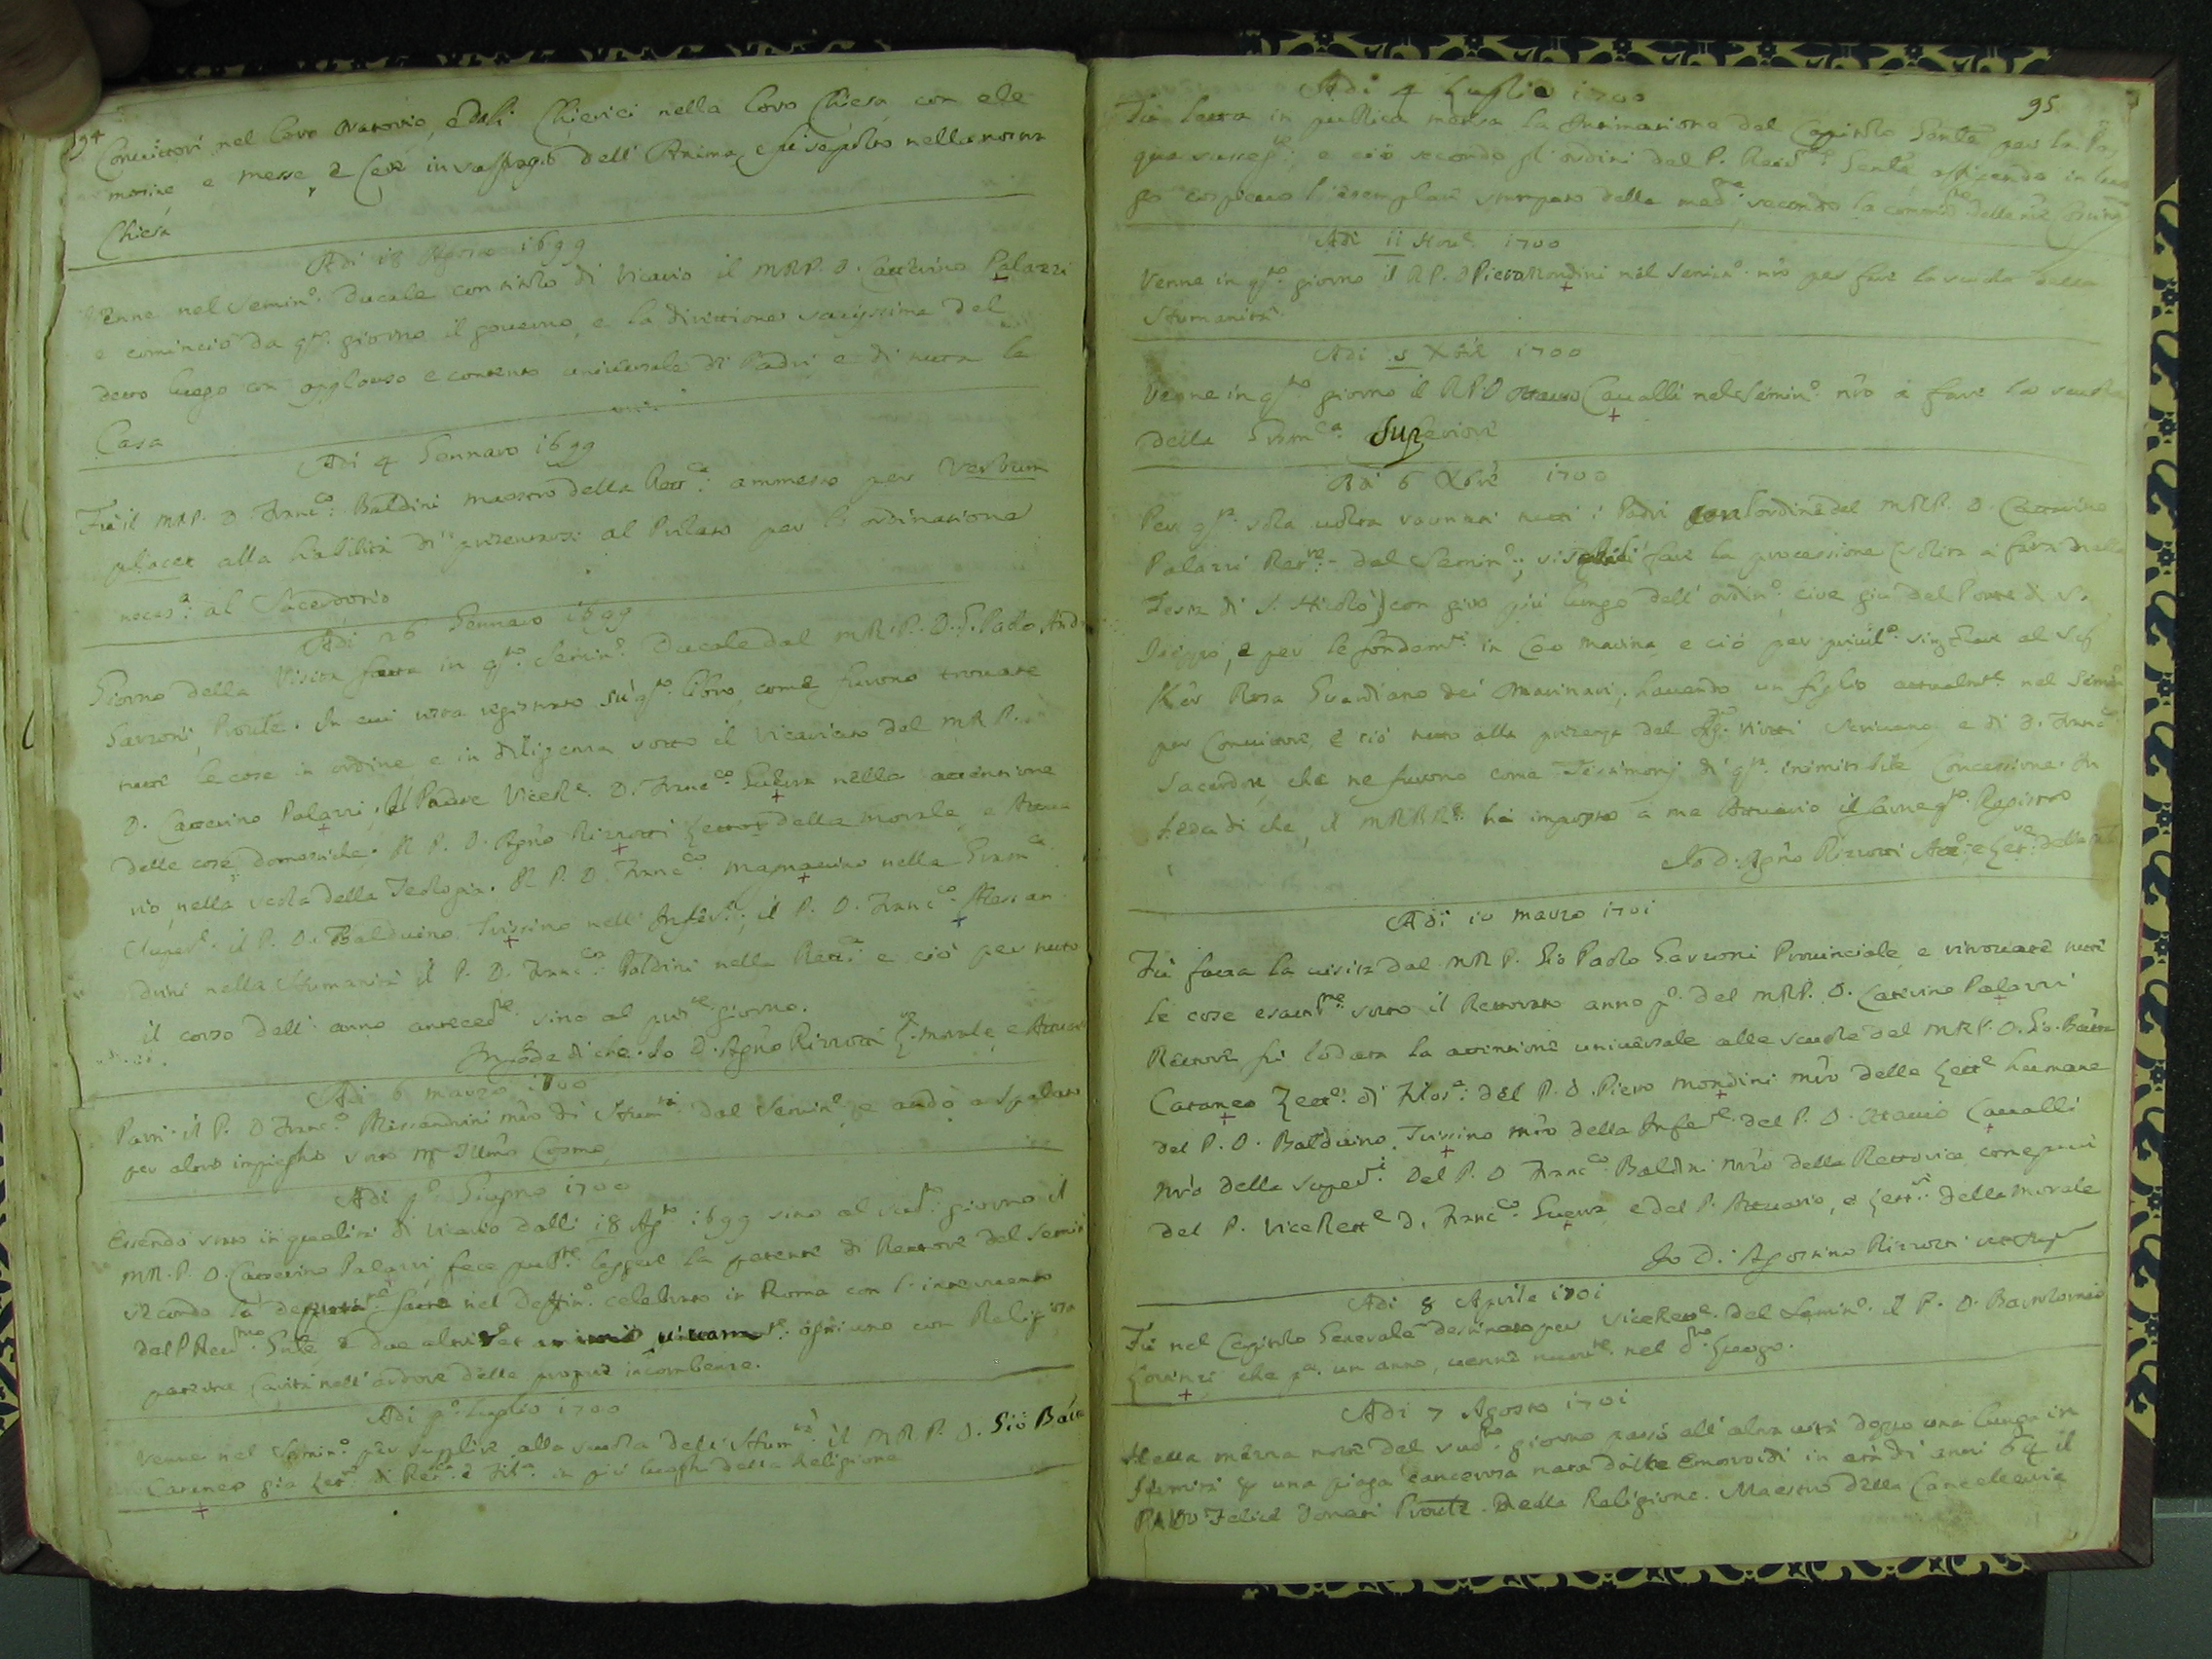 94
Convittori nel loro Oratorio, e dalli Chierici nella loro Chiesa con ele
mosine e messe, e cere in suffragio dell' Anima, e fu sepolto nella nostra
Chiesa
Adi 18 Agosto 1699
Venne nel Semin.o Ducale con titolo di Vicario il M.R.P. D. Catterino Palazzi
e cominciò da q.to giorno il governo, e la direttione savijssima del
detto luogo con applauso e contento universale di Padri e di tutta la
Casa
Adi 4 Gennaro 1699
Fù il M.R.P. D. Franc.co Baldini maestro della Rett.ca ammesso per Verbum
placet alla habilità di presentarsi al Prelato per l'ordinatione
necess.a al Sacerdotio
Adi 26 Gennaro 1699
Giorno della Visita fatta in q.to Semin.o Ducale dal M.R.P. D. G. Paolo And
Savzoni, Prou.le. In cui resta registrato sù q.to libro, come furono trovate
tutte le cose in ordine e in diligenza sotto il Vicariato del M.R.P.
D. Catterino Palazzi, il Padre ViceRe. D. Franc.co Guerra nella attentione
delle cose domestiche. Il P. D. Ag.no Rizzotti Lettor della morale, e Attua
rio, nella scola della Teologia. Il P. D. Franc.co Magnavino nella Gram.ca
Super.e il P. D. Balduino Trissino nell' Infer.e; il P. D. Franc.co Alessan
drini nella Humanità il P. D. Franc.co Baldini nella Rett.ca e ciò per tutto
il corso dell' anno anteced.te sino al pres.te giorno.
In fede di che. Io D. Ag.no Rizzotti L.re morale, e Attuar
Adi 6 marzo 1700
Partì il P. D. Franc.co Alessandrini m.ro di Hum.tà dal Semin.o, e andò a Spalato
per altro impiegho sotto M.r Ill.mo Cosmo
Adi p.o Giugno 1700
Essendo stato in qualità di vicario dalli 18 Ag.to 1699 sino al sud.to giorno il
M.R.P. D. Catterino Palazzi fece pub.te leggere la patente di Rettore del Semin
secondo la fatta nel Deffin.o celebrato in Roma con l'intervento
del P. Rev.mo G.nle ogni uno con Religiosa
Carità nell' ardore delle proprie incombenze.
Adi p.o Luglio 1700
Venne nel Semin.o per supplire alla scuola dell' Hum.tà il M.R.P. D. Gio Batta
Cataneo già Let.re di Ret.ca e Filo.a in più luoghi della Religione
95
Adi 4 Luglio 1700
Fù letta in publica mensa la Intimatione del Capitolo G.nle per la Pas
qua e ciò secondo gl' ordini del P. Rev.mo G.nle affigendo in luo
go cospicuo l'esemplare stampato della med.ma, secondo
Adi 11 Nov.e 1700
Venne in q.to giorno il R.P. D Piero Mondini nel Semin.o n.ro per fare la scuola della
Humanità.
Adi 5 Xbre 1700
Venne in q.to giorno il R.P.D Ottavio Cavalli nel Semin.o n.ro a fare la scuola
della Gram.ca Superiore
Adi 6 Xbre 1700
Per q.ta sola volta radunati tutti i Padri con l'ordine del M.R.P. D. Catterino
Palazzi Ret.re del Semin.o; si stabilì fare la processione (solita a farsi nella
Festa di S. Nicolò) con giro più lungo dell' ordin.o, cioè giù del Ponte di S.
Iseppo, e per le fondam.te in Cao Marina e ciò per privil.o singolare al Sig
K.er Rosa Guardiano dei Marinari, havendo un figlio attualm.te nel Semin
per Convittore, e ciò tutto alla presenza del Sig. Scrivano e di D. Franc.co
Sacerdote, che ne furono come Testimonj di q.ta inimitabile Concessione. In
fede di che, il M.R.P.R.e ha imposto a me Attuario il farne q.to Registro
Io D. Ag.no Rizzotti Att.o e Let.re della
Adi 10 marzo 1701
Fù fatta la visita dal M.R.P. Gio Paolo Savzoni Provinciale, e ritrovate tutte
le cose sotto il Rettorato anno p.o del M.R.P. D. Caterino Palazzi
Rettore fù lodata la attentione universale alle scuole del M.R.P. D. Gio. Batta
Cataneo Lett.e di Filos.a del P. D. Piero Mondini m.ro delle Lett.e humane
del P. D. Balduino Trissino m.ro della Infer.e del P. D. Ottavio Cavalli
m.ro della Super.e Del P. D Franc.co Baldini m.ro della Rettorica come pure
del P. ViceRett.e D. Franc.co Guerra, e del P. Attuario, e Lett.re della morale
Io D. Agostino Rizzotti
Adi 8 Aprile 1701
Fù nel Capitolo Generale destinato per ViceRett.e del Semin.o il P. D. Bartolomeo
Lorenzi che p.a un anno, venne nel d.to luogo.
Adi 7 Agosto 1701
Nella mezza notte del sud.to giorno passò all' altra vita doppo una lunga in
firmità p una piaga cancerosa nata dalle Emoroidi in età di anni 64 il
P. Felice Donati Prou.le della Religione. Maestro della Cancelleria